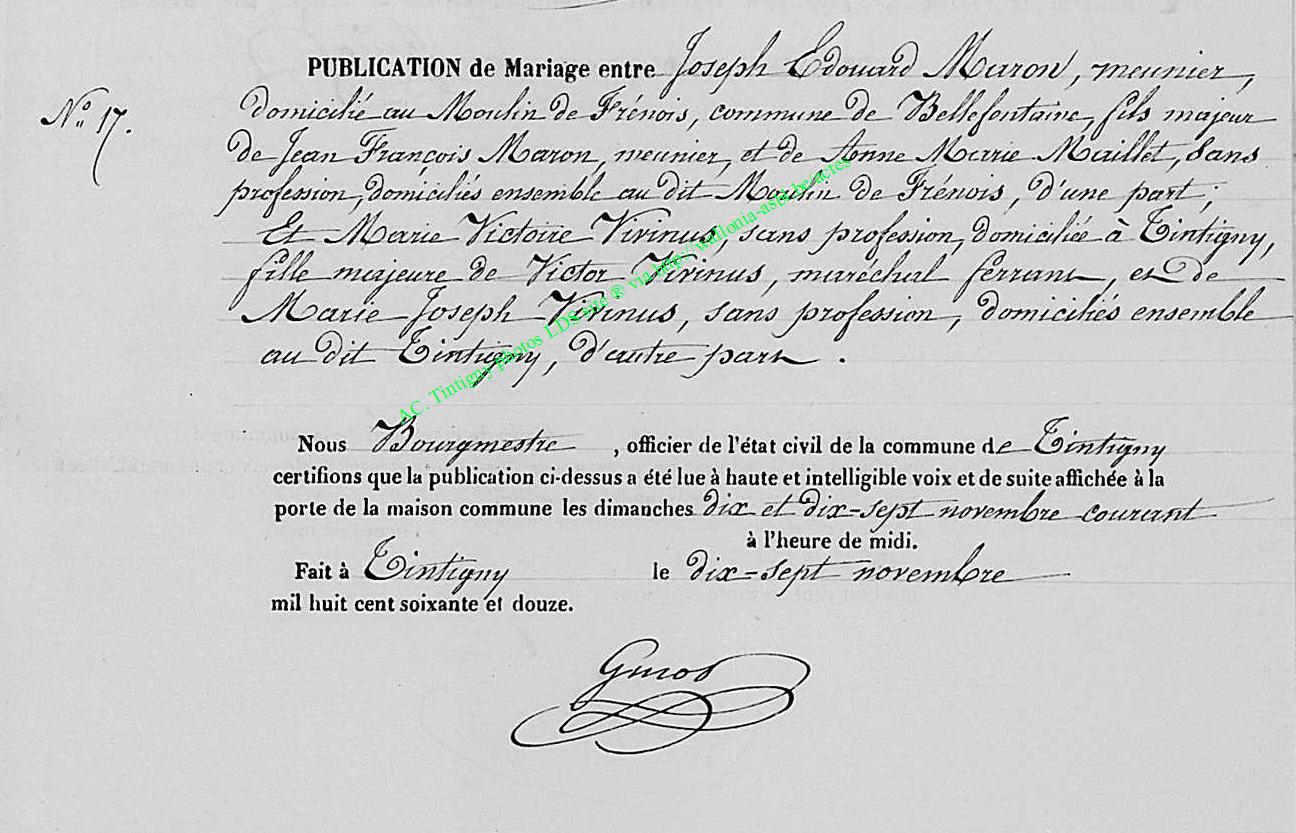 PUBLICATION de Mariage entre Joseph Edouard Maron, meunier,
N° 17.
domicilié au Moulin de Frénois, commune de Bellefontaine, fils majeur
de Jean François Maron, meunier, et de Anne Marie Maillet, sans
profession, domiciliés ensemble au dit Moulin de Frénois, d'une part;
Et Marie Victoire Virinus, sans profession, domiciliée à Tintigny,
fille majeure de Victor Virinus, maréchal ferrant, et de
Marie Joseph Virinus, sans profession, domiciliés ensemble
au dit Tintigny, d'autre part.
AC. Tintigny photos LDS site ® via http://wallonia-asbl.be/actes
Nous Bourgmestre, officier de l'état civil de la commune de Tintigny
certifions que la publication ci-dessus a été lue à haute et intelligible voix et de suite affichée à la
porte de la maison commune les dimanches dix et dix-sept novembre courant
à l'heure de midi.
Fait à Tintigny le dix-sept novembre
mil huit cent soixante et douze.